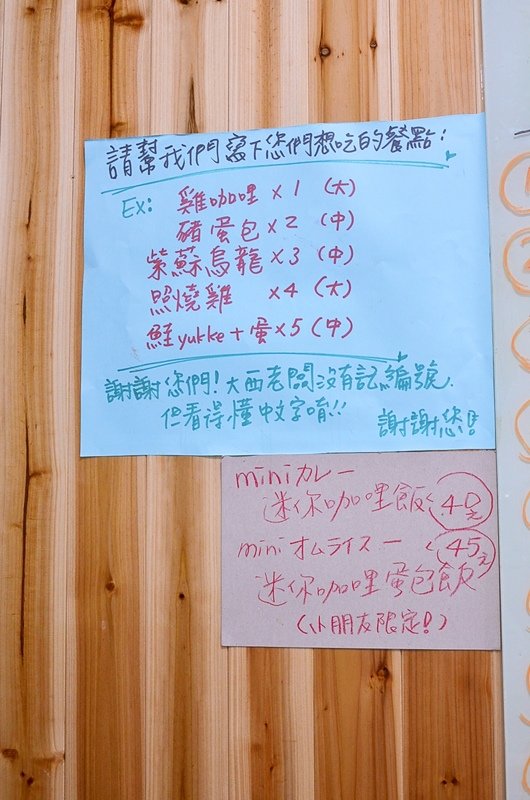 請幫我們寫下您們想吃的餐點:
Ex: 雞咖哩 x 1 (大)
豬蛋包 x 2 (中)
紫蘇烏龍 x 3 (中)
照燒雞 x 4 (大)
鮭yukke + 蛋 x 5 (中)
謝謝您們! 大西老闆沒有記編號.
但看得懂中文字唷!!
謝謝您!!
miniカレー
迷你咖哩飯 40元
miniオムライスー 45元
迷你咖哩蛋包飯
(小朋友限定!)